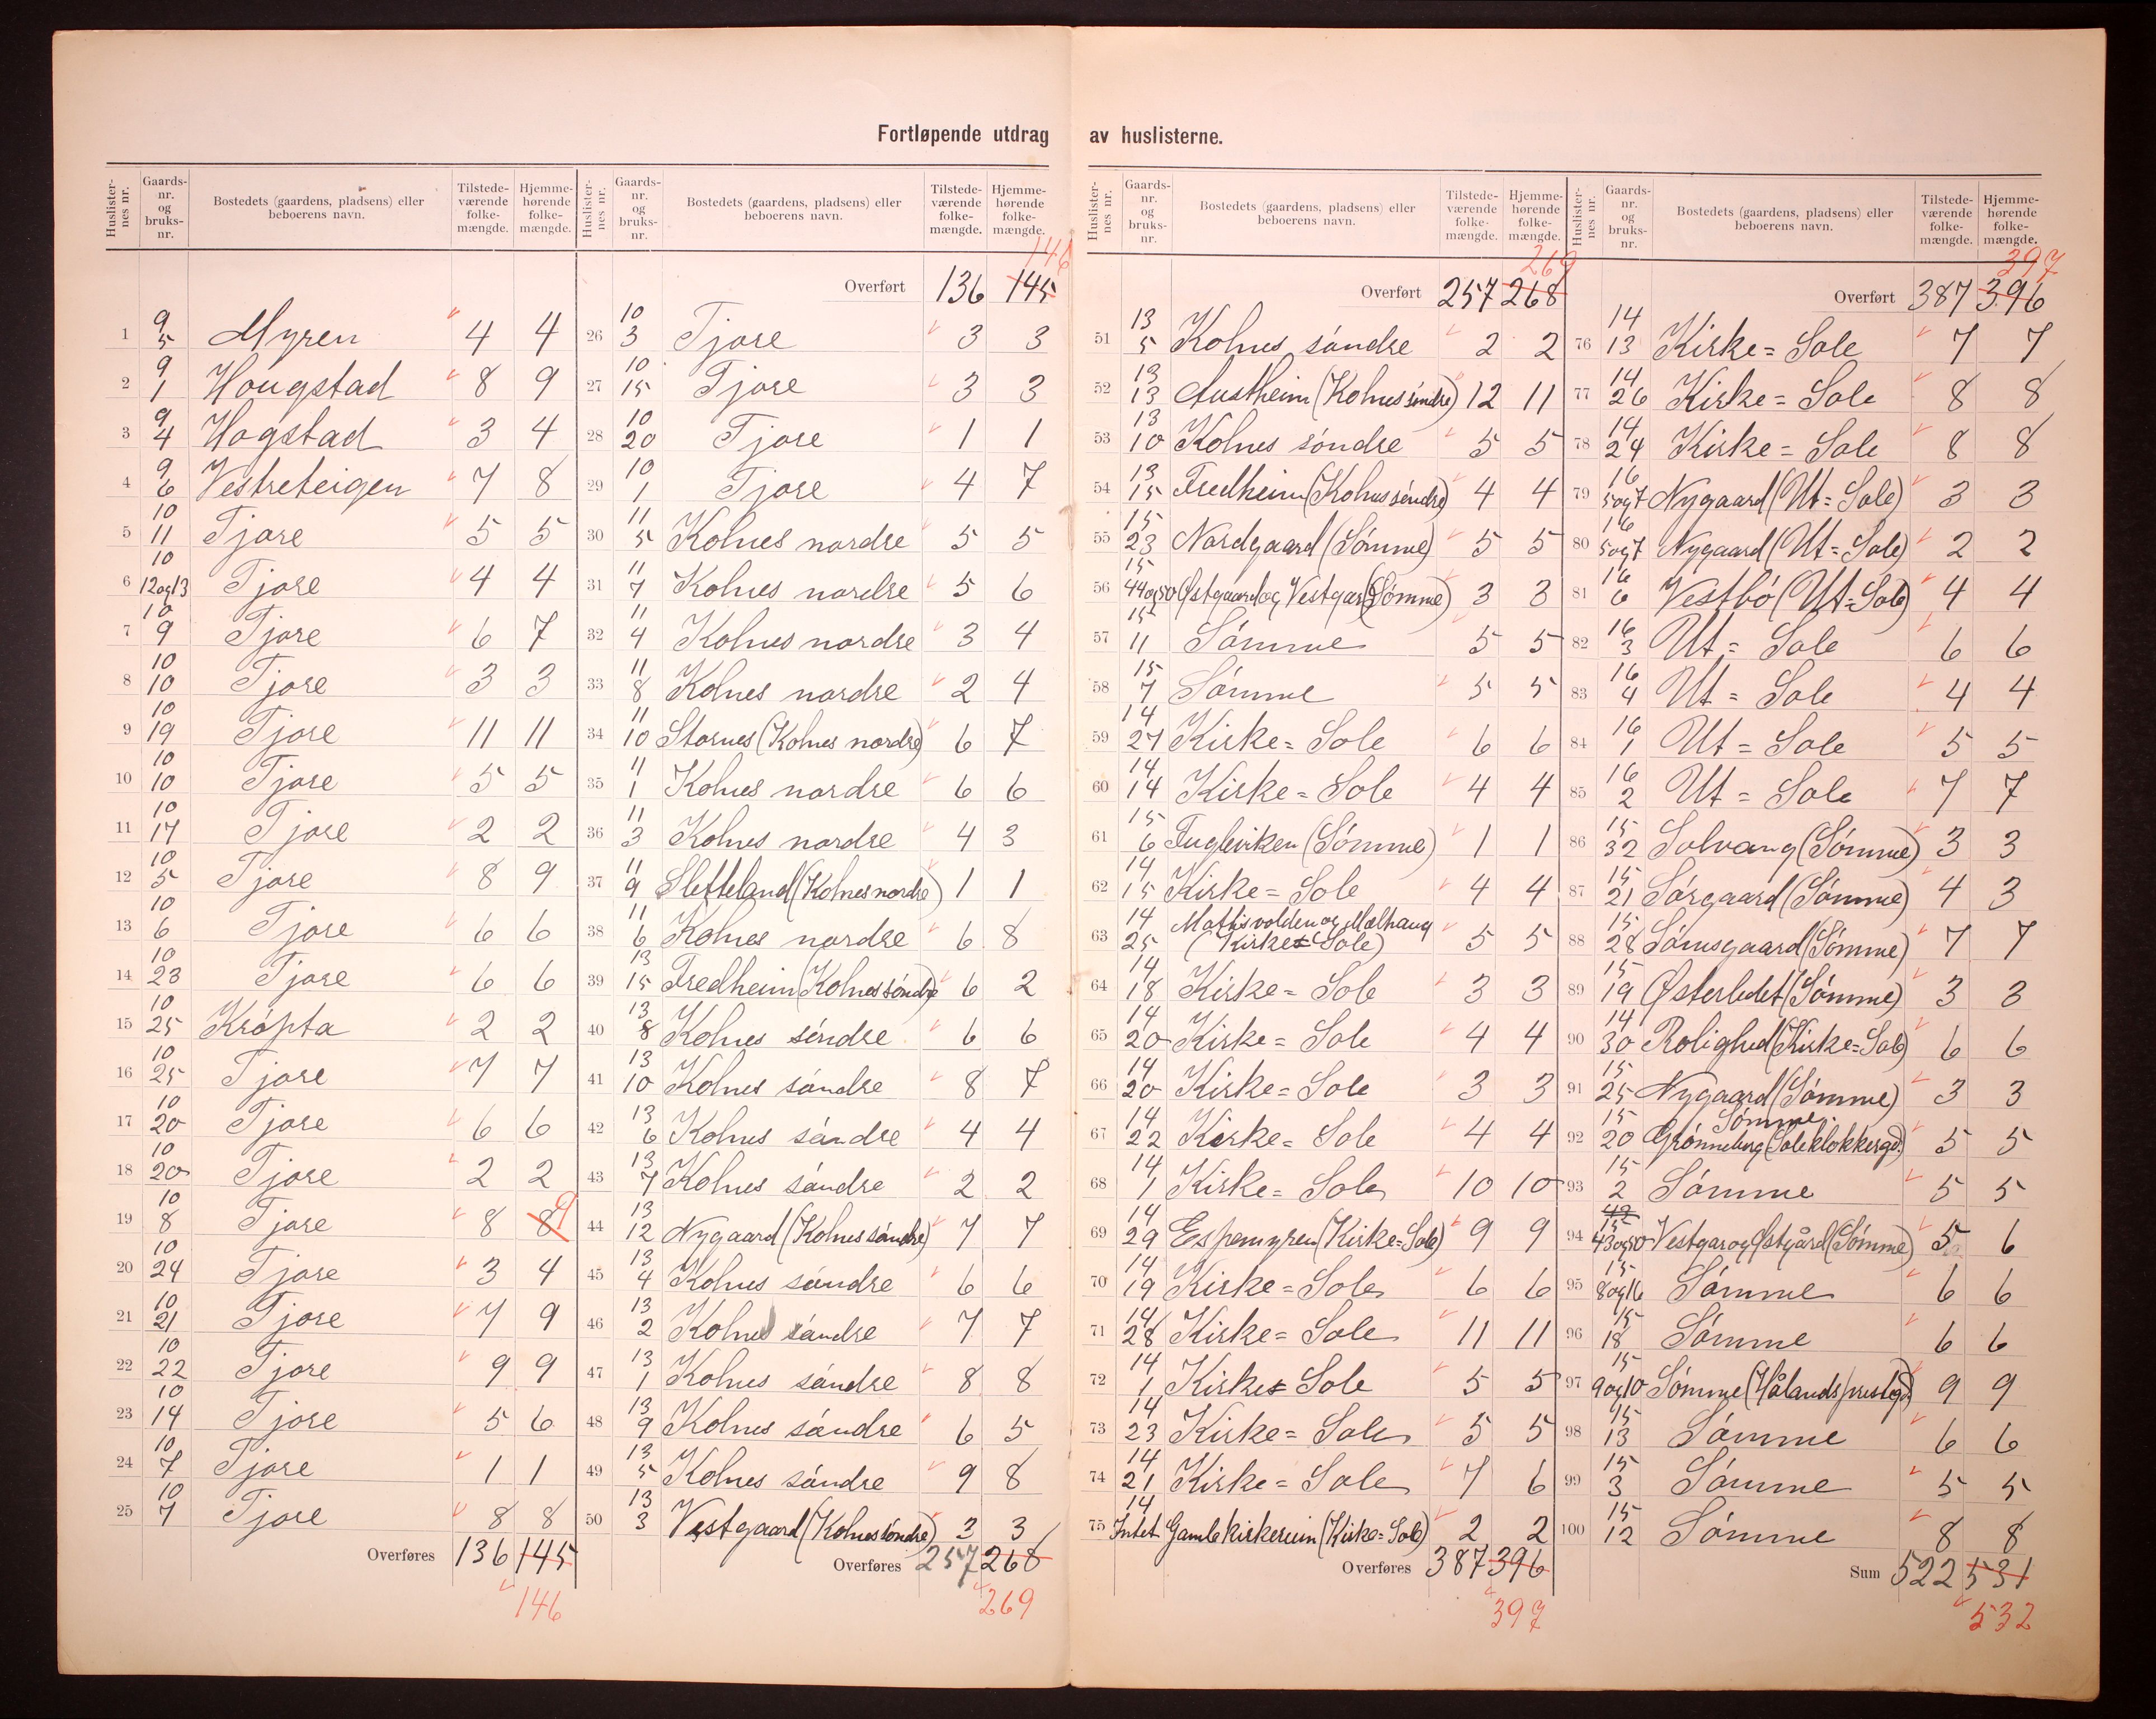 Fortløpende utdrag av huslisterne.
Huslister-nes nr. | Gaards-nr. og bruks-nr. | Bostedets (gaardens, pladsens) eller beboerens navn. | Tilstede-værende folke-mængde. | Hjemme-hørende folke-mængde.
1 9/5 Myren 4 4
2 9/1 Hougstad 8 9
3 9/4 Hogstad 3 4
4 9/6 Vestreteigen 7 8
5 10/11 Tjore 5 5
6 10/12og13 Tjore 4 4
7 10/9 Tjore 6 7
8 10/10 Tjore 3 3
9 10/19 Tjore 11 11
10 10/10 Tjore 5 5
11 10/17 Tjore 2 2
12 10/5 Tjore 8 9
13 10/6 Tjore 6 6
14 10/23 Tjore 6 6
15 10/25 Krópta 2 2
16 10/25 Tjore 7 7
17 10/20 Tjore 6 6
18 10/20 Tjore 2 2
19 10/8 Tjore 8 8 9
20 10/24 Tjore 3 4
21 10/21 Tjore 7 9
22 10/22 Tjore 9 9
23 10/14 Tjore 5 6
24 10/7 Tjore 1 1
25 10/7 Tjore 8 8
Overføres 136 145
146
Huslister-nes nr. | Gaards-nr. og bruks-nr. | Bostedets (gaardens, pladsens) eller beboerens navn. | Tilstede-værende folke-mængde. | Hjemme-hørende folke-mængde.
146
Overført 136 145
26 10/3 Tjore 3 3
27 10/15 Tjore 3 3
28 10/20 Tjore 1 1
29 10/1 Tjore 4 7
30 11/5 Kolnes nordre 5 5
31 11/7 Kolnes nordre 5 6
32 11/4 Kolnes nordre 3 4
33 11/8 Kolnes nordre 2 4
34 11/10 Stornes (Kolnes nordre) 6 7
35 11/1 Kolnes nordre 6 6
36 11/3 Kolnes nordre 4 3
37 11/9 Sletteland (Kolnes nordre) 1 1
38 11/6 Kolnes nordre 6 8
39 13/15 Fredheim (Kolnes sóndre) 6 2
40 13/8 Kolnes sóndre 6 6
41 13/10 Kolnes sóndre 8 7
42 13/6 Kolnes sóndre 4 4
43 13/7 Kolnes sóndre 2 2
44 13/12 Nygaard (Kolnes sóndre) 7 7
45 13/4 Kolnes sóndre 6 6
46 13/2 Kolnes sóndre 7 7
47 13/1 Kolnes sóndre 8 8
48 13/9 Kolnes sóndre 6 5
49 13/5 Kolnes sóndre 9 8
50 13/3 Vestgaard (Kolnes sóndre) 3 3
Overføres 257 268
269
Huslister-nes nr. | Gaards-nr. og bruks-nr. | Bostedets (gaardens, pladsens) eller beboerens navn. | Tilstede-værende folke-mængde. | Hjemme-hørende folke-mængde.
269
Overført 257 268
51 13/5 Kolnes sóndre 2 2
52 13/13 Austheim (Kolnes sóndre) 12 11
53 13/10 Kolnes sóndre 5 5
54 13/15 Fredheim (Kolnes sóndre) 4 4
55 15/23 Nordgaard (Sómme) 5 5
56 15/44og50 Østgaard og Vestgar (Sómme) 3 3
57 15/11 Sómme 5 5
58 15/7 Sómme 5 5
59 14/27 Kirke = Sole 6 6
60 14/14 Kirke = Sole 4 4
61 15/6 Fugleviken (Sómme) 1 1
62 14/15 Kirke = Sole 4 4
63 14/25 Mattisvolden og Mælhaug (Kirke = Sole) 5 5
64 14/18 Kirke = Sole 3 3
65 14/20 Kirke = Sole 4 4
66 14/20 Kirke = Sole 3 3
67 14/22 Kirke = Sole 4 4
68 14/1 Kirke = Sole 10 10
69 14/29 Espemyren (Kirke = Sole) 9 9
70 14/19 Kirke = Sole 6 6
71 14/28 Kirke = Sole 11 11
72 14/1 Kirke = Sole 5 5
73 14/23 Kirke = Sole 5 5
74 14/21 Kirke = Sole 7 6
75 14/Intet Gamlekirkereim (Kirke = Sole) 2 2
Overføres 387 396
397
Huslister-nes nr. | Gaards-nr. og bruks-nr. | Bostedets (gaardens, pladsens) eller beboerens navn. | Tilstede-værende folke-mængde. | Hjemme-hørende folke-mængde.
397
Overført 387 396
76 14/13 Kirke = Sole 7 7
77 14/26 Kirke = Sole 8 8
78 14/24 Kirke = Sole 8 8
79 16/5og7 Nygaard (Ut = Sole) 3 3
80 16/5og7 Nygaard (Ut = Sole) 2 2
81 16/6 Vestbó (Ut = Sole) 4 4
82 16/3 Ut = Sole 6 6
83 16/4 Ut = Sole 4 4
84 16/1 Ut = Sole 5 5
85 16/2 Ut = Sole 7 7
86 15/32 Solvang (Sómme) 3 3
87 15/21 Sórgaard (Sómme) 4 3
88 15/28 Sómsgaard (Sómme) 7 7
89 15/19 Østerledet (Sómme) 3 3
90 14/30 Rolighed (Kirke = Sole) 6 6
91 15/25 Nygaard (Sómme) 3 3
92 15/20 Grónneberg (Sole klokkergd.) Sómme. 5 5
93 15/2 Sómme 5 5
94 15/43og50 Vestgar og Østgård (Sómme) 5 6
95 15/8og16 Sómme 6 6
96 15/18 Sómme 6 6
97 15/9og10 Sómme (Hålands prestegd.) 9 9
98 15/13 Sómme 6 6
99 15/3 Sómme 5 5
100 15/12 Sómme 8 8
Sum 522 531
532